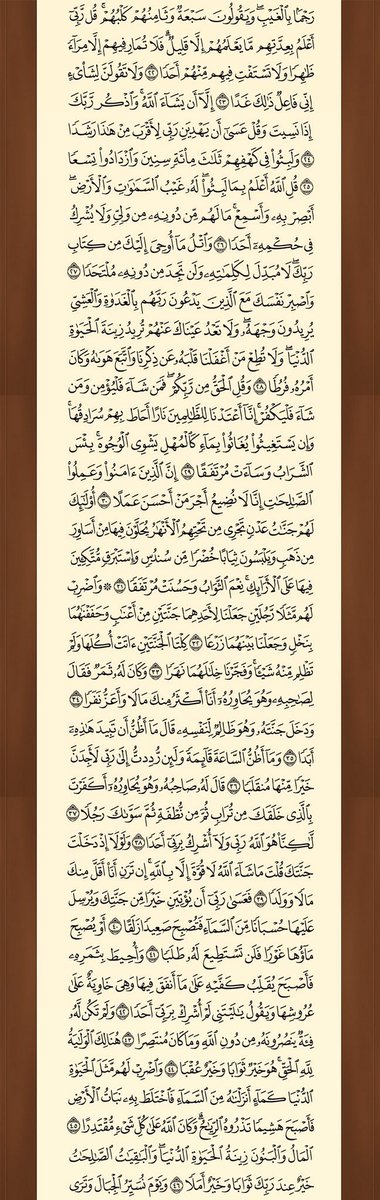 رَجْمًۢا بِٱلْغَيْبِ ۖ وَيَقُولُونَ سَبْعَةٌ وَثَامِنُهُمْ كَلْبُهُمْ ۚ قُل رَّبِّىٓ
أَعْلَمُ بِعِدَّتِهِم مَّا يَعْلَمُهُمْ إِلَّا قَلِيلٌ ۗ فَلَا تُمَارِ فِيهِمْ إِلَّا مِرَآءً
ظَٰهِرًا وَلَا تَسْتَفْتِ فِيهِم مِّنْهُمْ أَحَدًا ٢٢ وَلَا تَقُولَنَّ لِشَا۟ىْءٍ
إِنِّى فَاعِلٌ ذَٰلِكَ غَدًا ٢٣ إِلَّآ أَن يَشَآءَ ٱللَّهُ ۚ وَٱذْكُر رَّبَّكَ
إِذَا نَسِيتَ وَقُلْ عَسَىٰٓ أَن يَهْدِيَنِ رَبِّى لِأَقْرَبَ مِنْ هَٰذَا رَشَدًا
٢٤ وَلَبِثُوا۟ فِى كَهْفِهِمْ ثَلَٰثَ مِا۟ئَةٍ سِنِينَ وَٱزْدَادُوا۟ تِسْعًا
٢٥ قُلِ ٱللَّهُ أَعْلَمُ بِمَا لَبِثُوا۟ ۖ لَهُۥ غَيْبُ ٱلسَّمَٰوَٰتِ وَٱلْأَرْضِ ۖ
أَبْصِرْ بِهِۦ وَأَسْمِعْ ۚ مَا لَهُم مِّن دُونِهِۦ مِن وَلِىٍّ وَلَا يُشْرِكُ
فِى حُكْمِهِۦٓ أَحَدًا ٢٦ وَٱتْلُ مَآ أُوحِىَ إِلَيْكَ مِن كِتَابِ
رَبِّكَ ۖ لَا مُبَدِّلَ لِكَلِمَٰتِهِۦ وَلَن تَجِدَ مِن دُونِهِۦ مُلْتَحَدًا ٢٧
وَٱصْبِرْ نَفْسَكَ مَعَ ٱلَّذِينَ يَدْعُونَ رَبَّهُم بِٱلْغَدَوٰةِ وَٱلْعَشِىِّ
يُرِيدُونَ وَجْهَهُۥ ۖ وَلَا تَعْدُ عَيْنَاكَ عَنْهُمْ تُرِيدُ زِينَةَ ٱلْحَيَوٰةِ
ٱلدُّنْيَا ۖ وَلَا تُطِعْ مَنْ أَغْفَلْنَا قَلْبَهُۥ عَن ذِكْرِنَا وَٱتَّبَعَ هَوَىٰهُ وَكَانَ
أَمْرُهُۥ فُرُطًا ٢٨ وَقُلِ ٱلْحَقُّ مِن رَّبِّكُمْ ۖ فَمَن شَآءَ فَلْيُؤْمِن وَمَن
شَآءَ فَلْيَكْفُرْ ۚ إِنَّآ أَعْتَدْنَا لِلظَّٰلِمِينَ نَارًا أَحَاطَ بِهِمْ سُرَادِقُهَا ۚ
وَإِن يَسْتَغِيثُوا۟ يُغَاثُوا۟ بِمَآءٍ كَٱلْمُهْلِ يَشْوِى ٱلْوُجُوهَ ۚ بِئْسَ
ٱلشَّرَابُ وَسَآءَتْ مُرْتَفَقًا ٢٩ إِنَّ ٱلَّذِينَ ءَامَنُوا۟ وَعَمِلُوا۟
ٱلصَّٰلِحَٰتِ إِنَّا لَا نُضِيعُ أَجْرَ مَنْ أَحْسَنَ عَمَلًا ٣٠ أُو۟لَٰٓئِكَ
لَهُمْ جَنَّٰتُ عَدْنٍ تَجْرِى مِن تَحْتِهِمُ ٱلْأَنْهَٰرُ يُحَلَّوْنَ فِيهَا مِنْ أَسَاوِرَ
مِن ذَهَبٍ وَيَلْبَسُونَ ثِيَابًا خُضْرًا مِّن سُندُسٍ وَإِسْتَبْرَقٍ مُّتَّكِـِٔينَ
فِيهَا عَلَى ٱلْأَرَآئِكِ ۚ نِعْمَ ٱلثَّوَابُ وَحَسُنَتْ مُرْتَفَقًا ٣١ ۞ وَٱضْرِبْ
لَهُم مَّثَلًا رَّجُلَيْنِ جَعَلْنَا لِأَحَدِهِمَا جَنَّتَيْنِ مِنْ أَعْنَٰبٍ وَحَفَفْنَٰهُمَا
بِنَخْلٍ وَجَعَلْنَا بَيْنَهُمَا زَرْعًا ٣٢ كِلْتَا ٱلْجَنَّتَيْنِ ءَاتَتْ أُكُلَهَا وَلَمْ
تَظْلِم مِّنْهُ شَيْـًٔا ۚ وَفَجَّرْنَا خِلَٰلَهُمَا نَهَرًا ٣٣ وَكَانَ لَهُۥ ثَمَرٌ فَقَالَ
لِصَٰحِبِهِۦ وَهُوَ يُحَاوِرُهُۥٓ أَنَا۠ أَكْثَرُ مِنكَ مَالًا وَأَعَزُّ نَفَرًا ٣٤
وَدَخَلَ جَنَّتَهُۥ وَهُوَ ظَالِمٌ لِّنَفْسِهِۦ قَالَ مَآ أَظُنُّ أَن تَبِيدَ هَٰذِهِۦٓ
أَبَدًا ٣٥ وَمَآ أَظُنُّ ٱلسَّاعَةَ قَآئِمَةً وَلَئِن رُّدِدتُّ إِلَىٰ رَبِّى لَأَجِدَنَّ
خَيْرًا مِّنْهَا مُنقَلَبًا ٣٦ قَالَ لَهُۥ صَاحِبُهُۥ وَهُوَ يُحَاوِرُهُۥٓ أَكَفَرْتَ
بِٱلَّذِى خَلَقَكَ مِن تُرَابٍ ثُمَّ مِن نُّطْفَةٍ ثُمَّ سَوَّىٰكَ رَجُلًا ٣٧
لَّٰكِنَّا۠ هُوَ ٱللَّهُ رَبِّى وَلَآ أُشْرِكُ بِرَبِّىٓ أَحَدًا ٣٨ وَلَوْلَآ إِذْ دَخَلْتَ
جَنَّتَكَ قُلْتَ مَا شَآءَ ٱللَّهُ لَا قُوَّةَ إِلَّا بِٱللَّهِ ۚ إِن تَرَنِ أَنَا۠ أَقَلَّ مِنكَ
مَالًا وَوَلَدًا ٣٩ فَعَسَىٰ رَبِّىٓ أَن يُؤْتِيَنِ خَيْرًا مِّن جَنَّتِكَ وَيُرْسِلَ
عَلَيْهَا حُسْبَانًا مِّنَ ٱلسَّمَآءِ فَتُصْبِحَ صَعِيدًا زَلَقًا ٤٠ أَوْ يُصْبِحَ
مَآؤُهَا غَوْرًا فَلَن تَسْتَطِيعَ لَهُۥ طَلَبًا ٤١ وَأُحِيطَ بِثَمَرِهِۦ
فَأَصْبَحَ يُقَلِّبُ كَفَّيْهِ عَلَىٰ مَآ أَنفَقَ فِيهَا وَهِىَ خَاوِيَةٌ عَلَىٰ
عُرُوشِهَا وَيَقُولُ يَٰلَيْتَنِى لَمْ أُشْرِكْ بِرَبِّىٓ أَحَدًا ٤٢ وَلَمْ تَكُن لَّهُۥ
فِئَةٌ يَنصُرُونَهُۥ مِن دُونِ ٱللَّهِ وَمَا كَانَ مُنتَصِرًا ٤٣ هُنَالِكَ ٱلْوَلَٰيَةُ
لِلَّهِ ٱلْحَقِّ ۚ هُوَ خَيْرٌ ثَوَابًا وَخَيْرٌ عُقْبًا ٤٤ وَٱضْرِبْ لَهُم مَّثَلَ ٱلْحَيَوٰةِ
ٱلدُّنْيَا كَمَآءٍ أَنزَلْنَٰهُ مِنَ ٱلسَّمَآءِ فَٱخْتَلَطَ بِهِۦ نَبَاتُ ٱلْأَرْضِ
فَأَصْبَحَ هَشِيمًا تَذْرُوهُ ٱلرِّيَٰحُ ۗ وَكَانَ ٱللَّهُ عَلَىٰ كُلِّ شَىْءٍ مُّقْتَدِرًا ٤٥
ٱلْمَالُ وَٱلْبَنُونَ زِينَةُ ٱلْحَيَوٰةِ ٱلدُّنْيَا ۖ وَٱلْبَٰقِيَٰتُ ٱلصَّٰلِحَٰتُ
خَيْرٌ عِندَ رَبِّكَ ثَوَابًا وَخَيْرٌ أَمَلًا ٤٦ وَيَوْمَ نُسَيِّرُ ٱلْجِبَالَ وَتَرَى